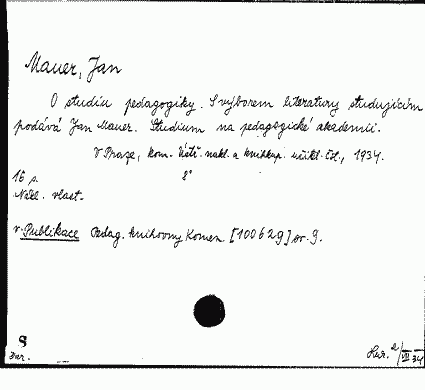 Mauer, Jan
O studiu pedagogiky. S výborem literatury studujícím
podává Jan Mauer. Studium na pedagogické akademii.
V Praze, kom. Ústř. nakl. a knihkup. učit. čsl., 1934.
16 s. 8°
Nákl. vlast.
v: Publikace Pedag. knihovny Komen [100629] sv. 9.
S
Dar. 2/VII 34